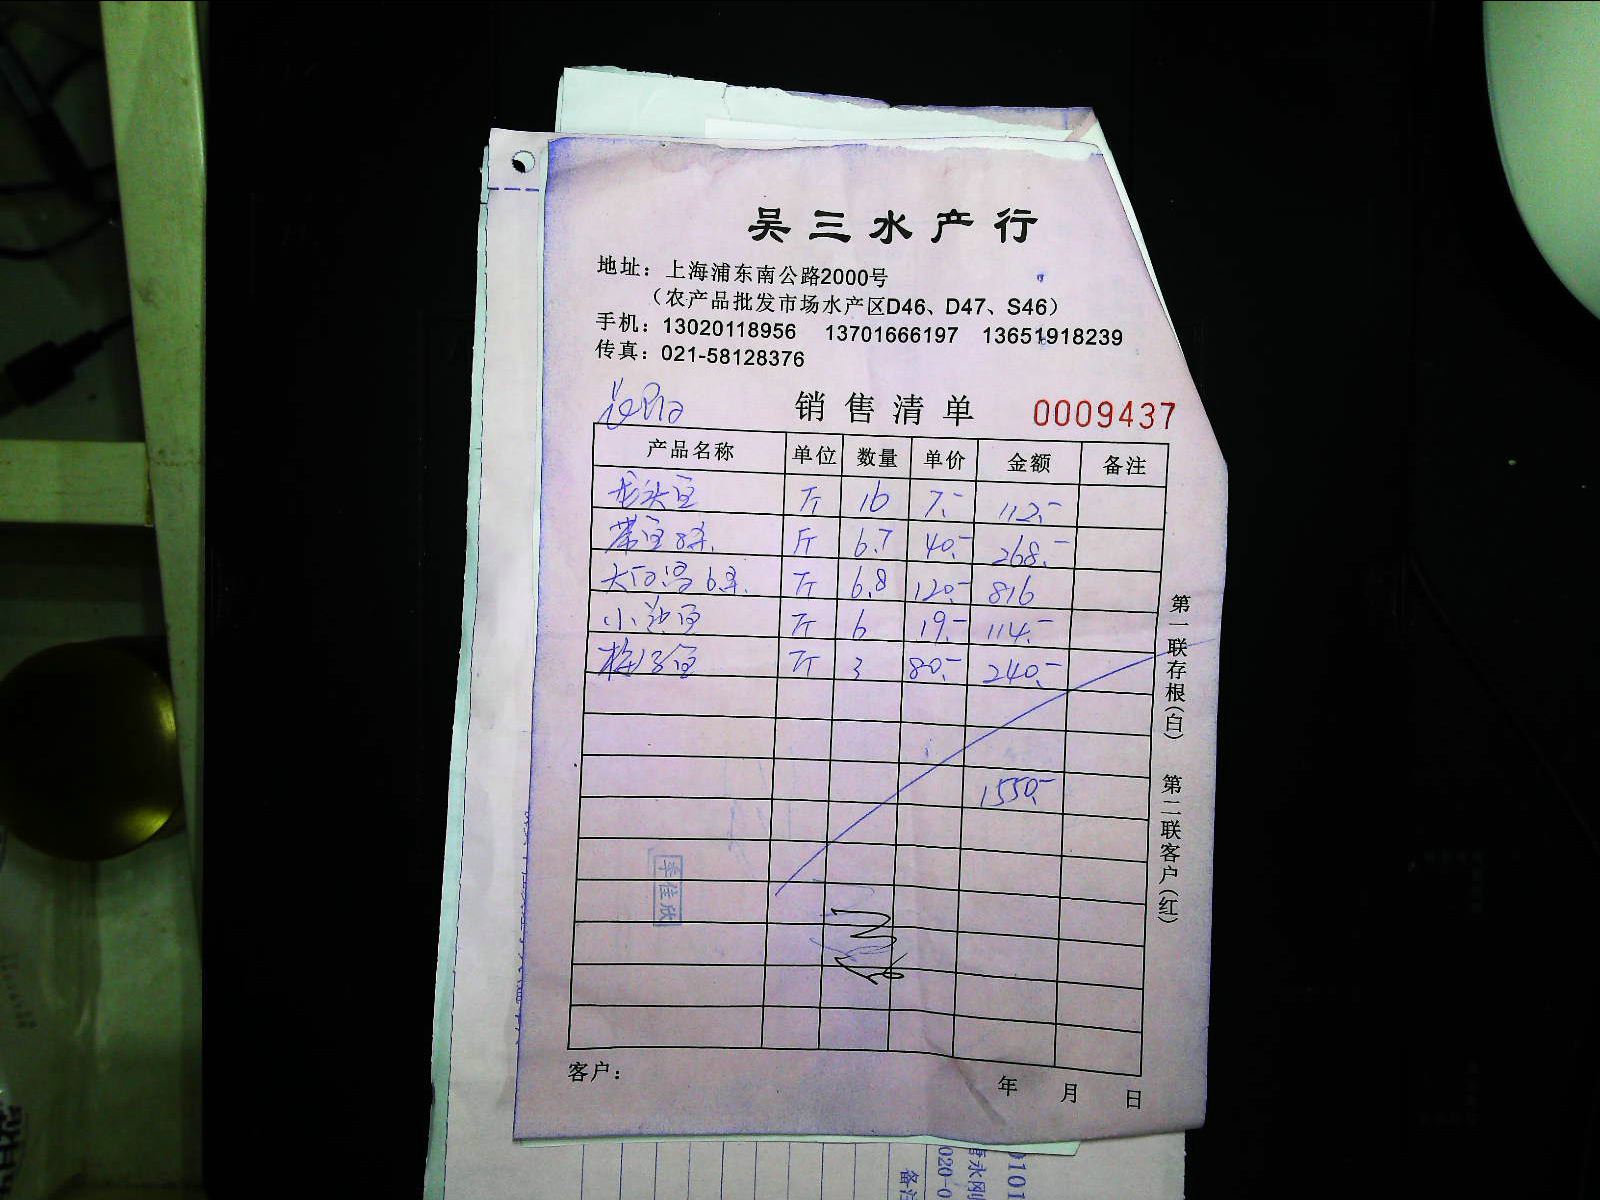 吴三水产行
地址：上海浦东南公路2000号
（农产品批发市场水产区D46、D47、S46）
手机：13020118956 13701666197 13651918239
传真：021-58128376
销售清单 0009437
产品名称 单位 数量 单价 金额 备注
龙头鱼 斤 16 7.- 112.-
带鱼8条. 斤 6.7 40.- 268.-
大白鲳6条. 斤 6.8 120.- 816
小黄鱼 斤 6 19.- 114.-
梅子鱼 斤 3 80.- 240.-
1550.-
佳欣
客户：
年 月 日
第一联存根（白） 第二联客户（红）
备注